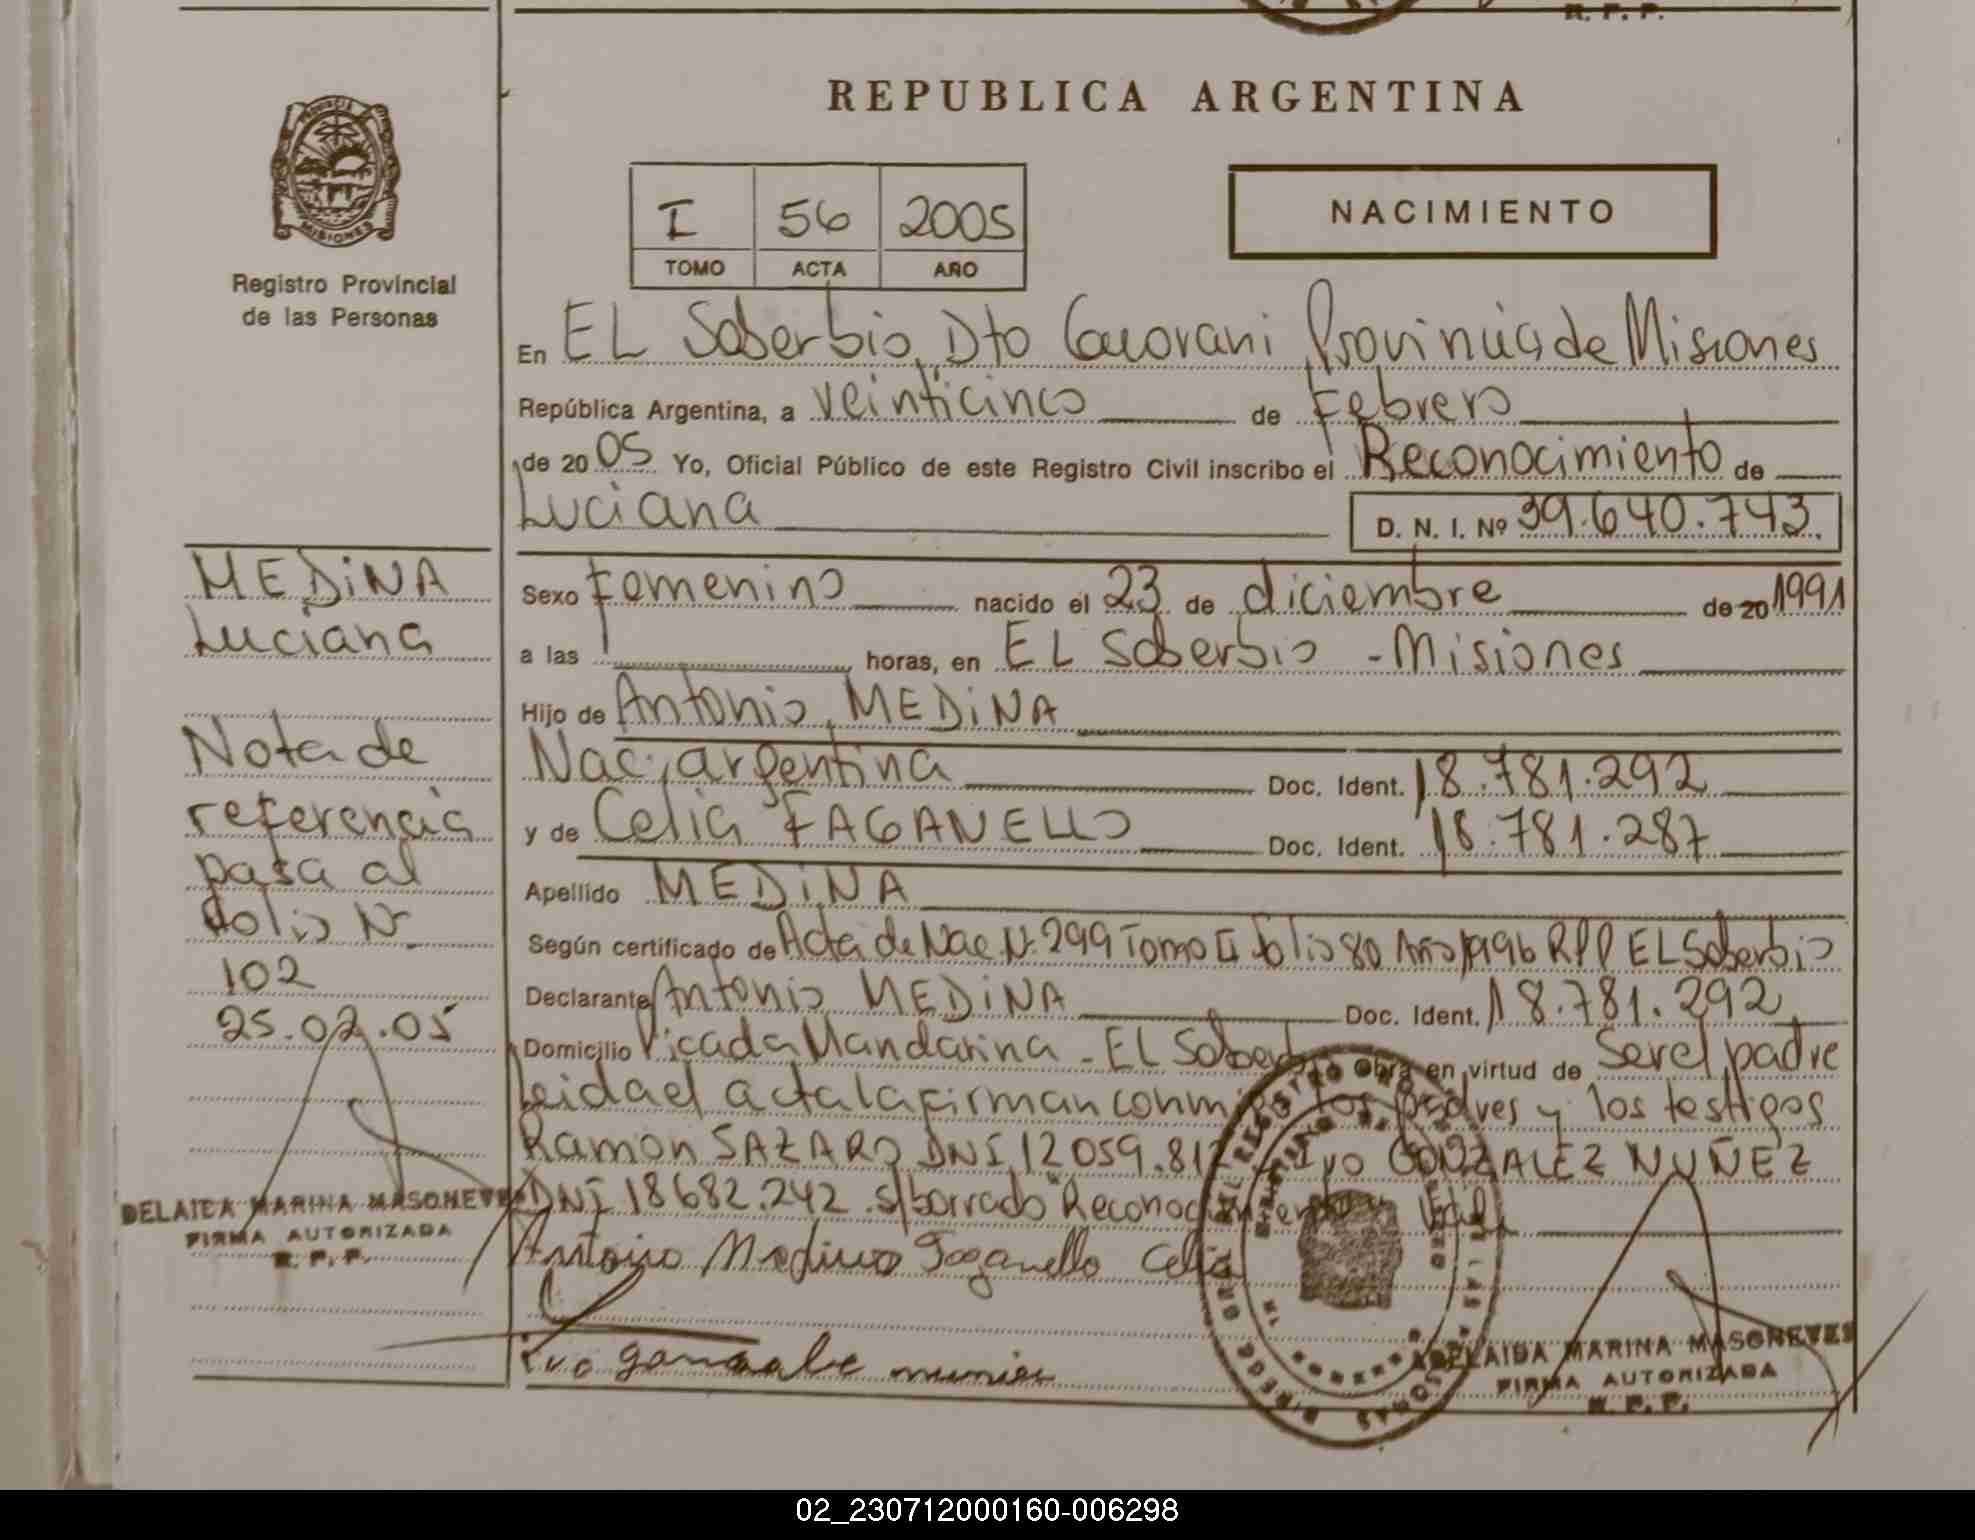 R. P. P.
REPUBLICA ARGENTINA
PROVINCIA
MISIONES
Registro Provincial
de las Personas
I 56 2005
TOMO ACTA AÑO
NACIMIENTO
En EL Soberbio, Dto Guarani Provincia de Misiones
República Argentina, a veinticinco de Febrero
de 2005 Yo, Oficial Público de este Registro Civil inscribo el Reconocimiento de
Luciana D. N. I. Nº 39.640.743.
MEDiNA
Luciana
Nota de
referencia
pasa al
folio Nº
102
25.02.05
DELAIDA MARINA MASONEVES
FIRMA AUTORIZADA
R. P. P.
Sexo Femenino nacido el 23 de diciembre de 20 1991
a las horas, en EL Soberbio - Misiones
Hijo de Antonio MEDiNA
Nac. argentina Doc. Ident. 18.781.292
y de Celia FAGANELLO Doc. Ident. 18.781.287
Apellido MEDiNA
Según certificado de Acta de Nac Nº 299 Tomo II folio 80 Año 1996 RPP EL Soberbio
Declarante Antonio MEDiNA Doc. Ident. 18.781.292
Domicilio Picada Mandarina - EL Soberbio Obra en virtud de Ser el padre
Leida el acta la firman conmigo los padres y los testigos
Ramon SAZARO DNI 12 059.812 Ivo GONZALEZ NUÑEZ
DNI 18682.242 . s/borrado "Reconocimiento" Vale
Antonio Medina Faganello Celia
Ivo gonzale
ADELAIDA MARINA MASONEVES
FIRMA AUTORIZADA
R. P. P.
02_230712000160-006298